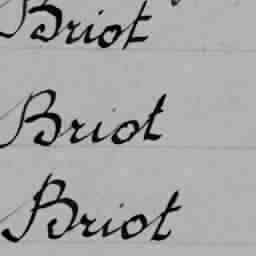 Briot
Briot
Briot